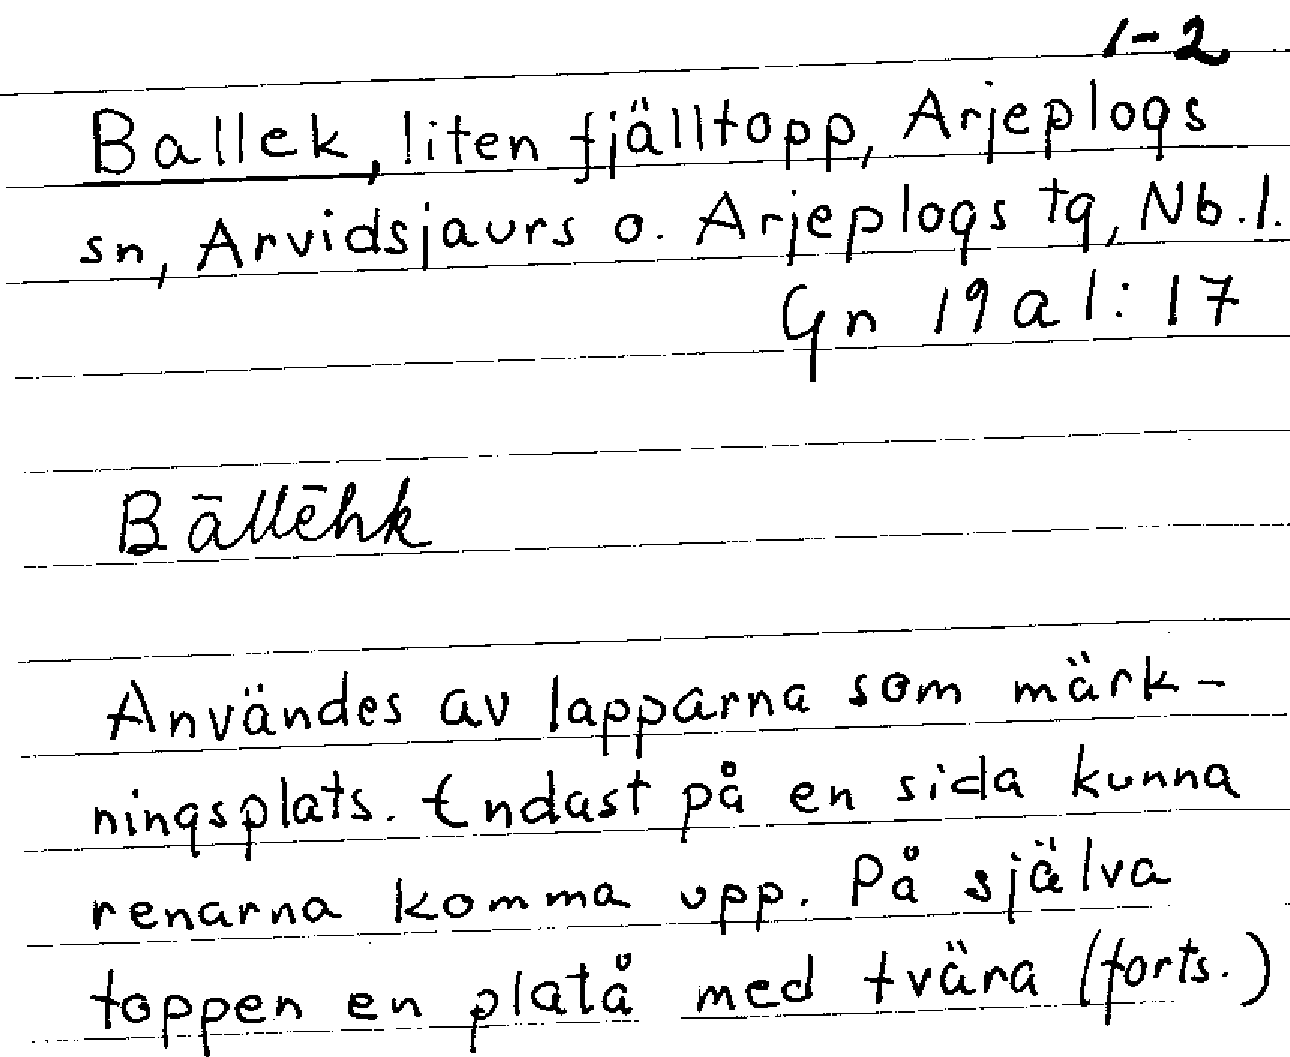 1-2
Ballek, liten fjälltopp, Arjeplogs
sn, Arvidsjaurs o. Arjeplogs tg, Nb.l.
Gn 19 a 1:17
Bāllēhk
Användes av lapparna som märk-
ningsplats. Endast på en sida kunna
renarna komma upp. På själva
toppen en platå med tvära (forts.)